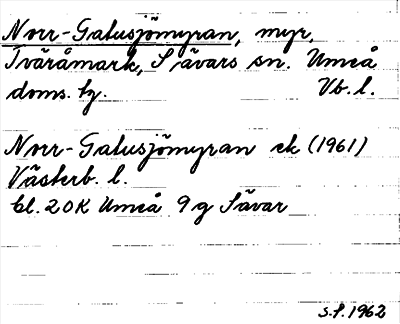 Norr-Gatusjömyran, myr,
Tväråmark, Sävars sn. Umeå
doms. hg. Vb. l.
Norr-Gatusjömyran ek (1961)
Västerb. l.
bl. 20K Umeå 9g Sävar
S.F. 1962